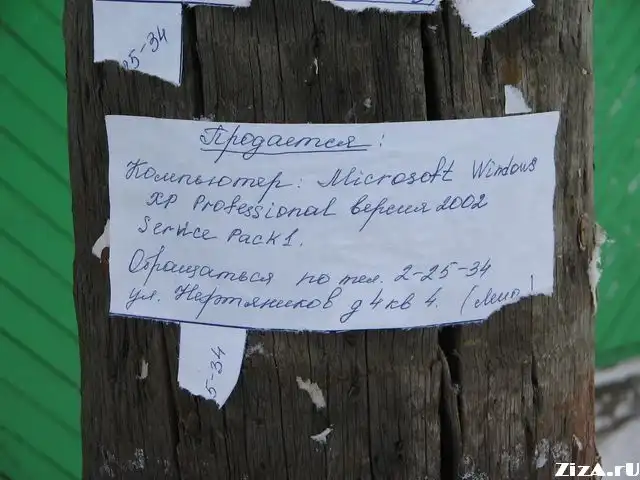 5-34
Продается:
Компьютер: Microsoft Windows
XP Professional версия 2002
Service Pack 1.
Обращаться по тел. 2-25-34
ул. Нефтяников д 4 кв 4.
5-34
ZiZA.rU